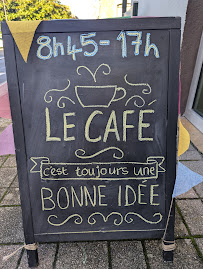 8h45-17h
LE CAFÉ
c'est toujours une
BONNE IDÉE